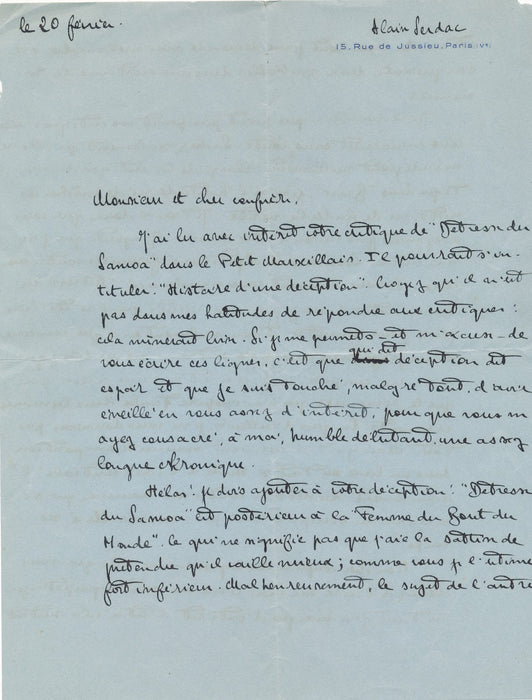 le 20 février.
Alain Serdac
15, Rue de Jussieu, Paris (Vᵉ)
Monsieur et cher confrère,
J'ai lu avec intérêt votre critique de "Détresse du
Samoa" dans le Petit Marseillais. Il pourrait s'in-
tituler: "Histoire d'une déception". Croyez qu'il n'est
pas dans mes habitudes de répondre aux critiques:
cela mènerait loin. Si je me permets - et m'excuse - de
vous écrire ces lignes, c'est que qui dit déception dit
espoir et que je suis touché, malgré tout, d'avoir
éveillé en vous assez d'intérêt, pour que vous m'
ayez consacré, à moi, humble débutant, une assez
longue chronique.
Hélas! je dois ajouter à votre déception: "Détresse
du Samoa" est postérieur à la "Femme du Bout du
Monde". Ce qui ne signifie pas que j'aie la
prétendre qu'il vaille mieux; comme vous je l'estime
fort inférieur. Malheureusement, le sujet de l'autre